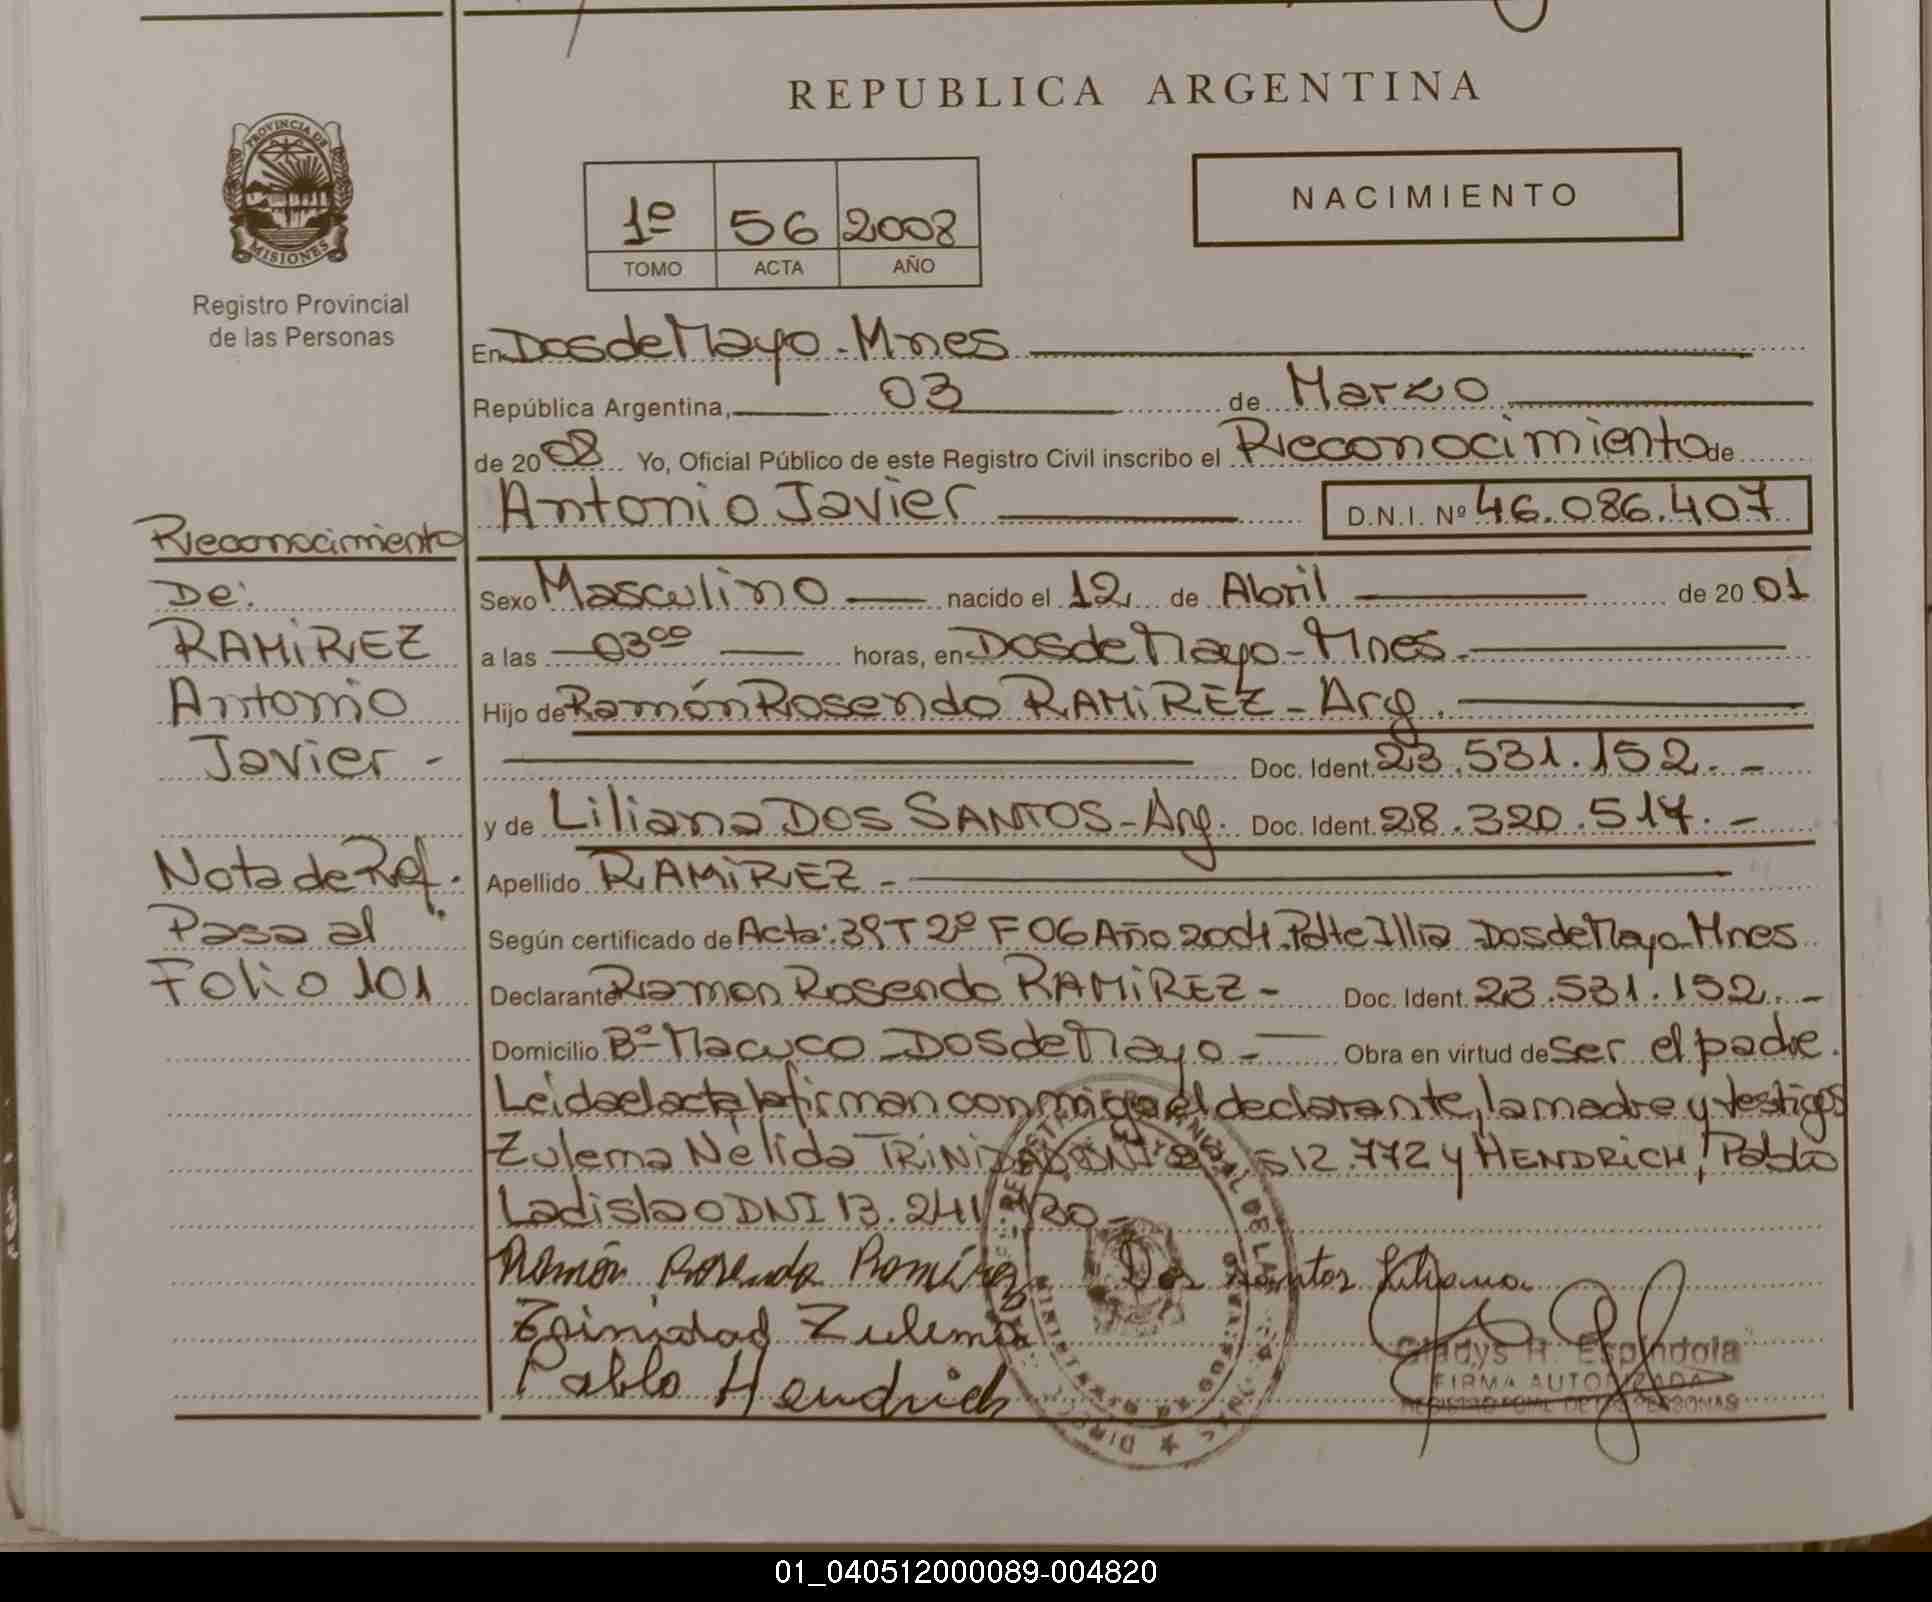 REPUBLICA ARGENTINA
PROVINCIA DE
MISIONES
Registro Provincial
de las Personas
1º 56 2008
TOMO ACTA AÑO
NACIMIENTO
En Dos de Mayo - Mnes
República Argentina, 03 de Marzo
de 2008 Yo, Oficial Público de este Registro Civil inscribo el Reconocimiento de
Antonio Javier D.N.I. Nº 46.086.407
Sexo Masculino nacido el 12 de Abril de 2001
a las 03⁰⁰ horas, en Dos de Mayo - Mnes.
Hijo de Ramón Rosendo RAMiREZ - Arg.
Doc. Ident. 23.531.152.-
y de Liliana DOS SANTOS - Arg. Doc. Ident. 28.320.517.-
Apellido RAMiREZ -
Según certificado de Acta: 39 T 2º F 06 Año 2004. Pdte Illia Dos de Mayo - Mnes
Declarante Ramon Rosendo RAMiREZ - Doc. Ident. 23.531.152.-
Domicilio Bº Macuco - Dos de Mayo - Obra en virtud de ser el padre.
Leida el acta la firman conmigo el declarante, la madre y testigos
Zulema Nélida TRiNiDAD DNI 512.772 y HENDRiCH, Pablo
Ladislao DNI 13.241.
Ramón Rosendo Ramírez Dos Santos Liliana
Trinidad Zulema
Pablo Hendrich
Gladys H. Espíndola
FIRMA AUTORIZADA
REGISTRO PCIAL DE LAS PERSONAS
Reconocimiento
De:
RAMiREZ
Antonio
Javier -
Nota de Ref.
Pasa al
Folio 101
01_040512000089-004820